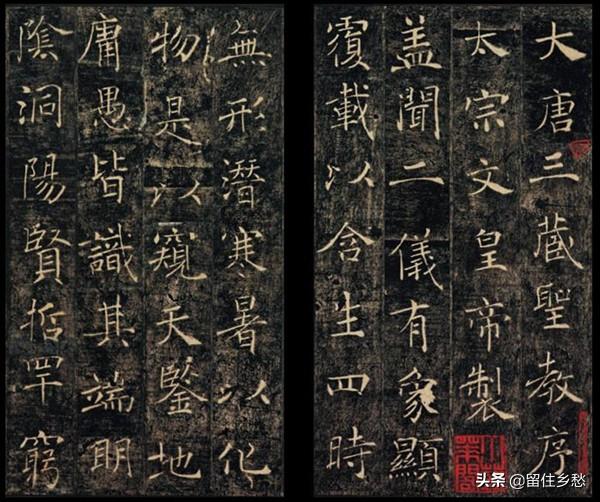 大唐三藏聖教序
太宗文皇帝製
盖聞二儀有象顯
覆載以含生四時
無形潛寒暑以化
物是以窺天鑒地
庸愚皆識其端明
陰洞陽賢哲罕窮
头条 @留住乡愁